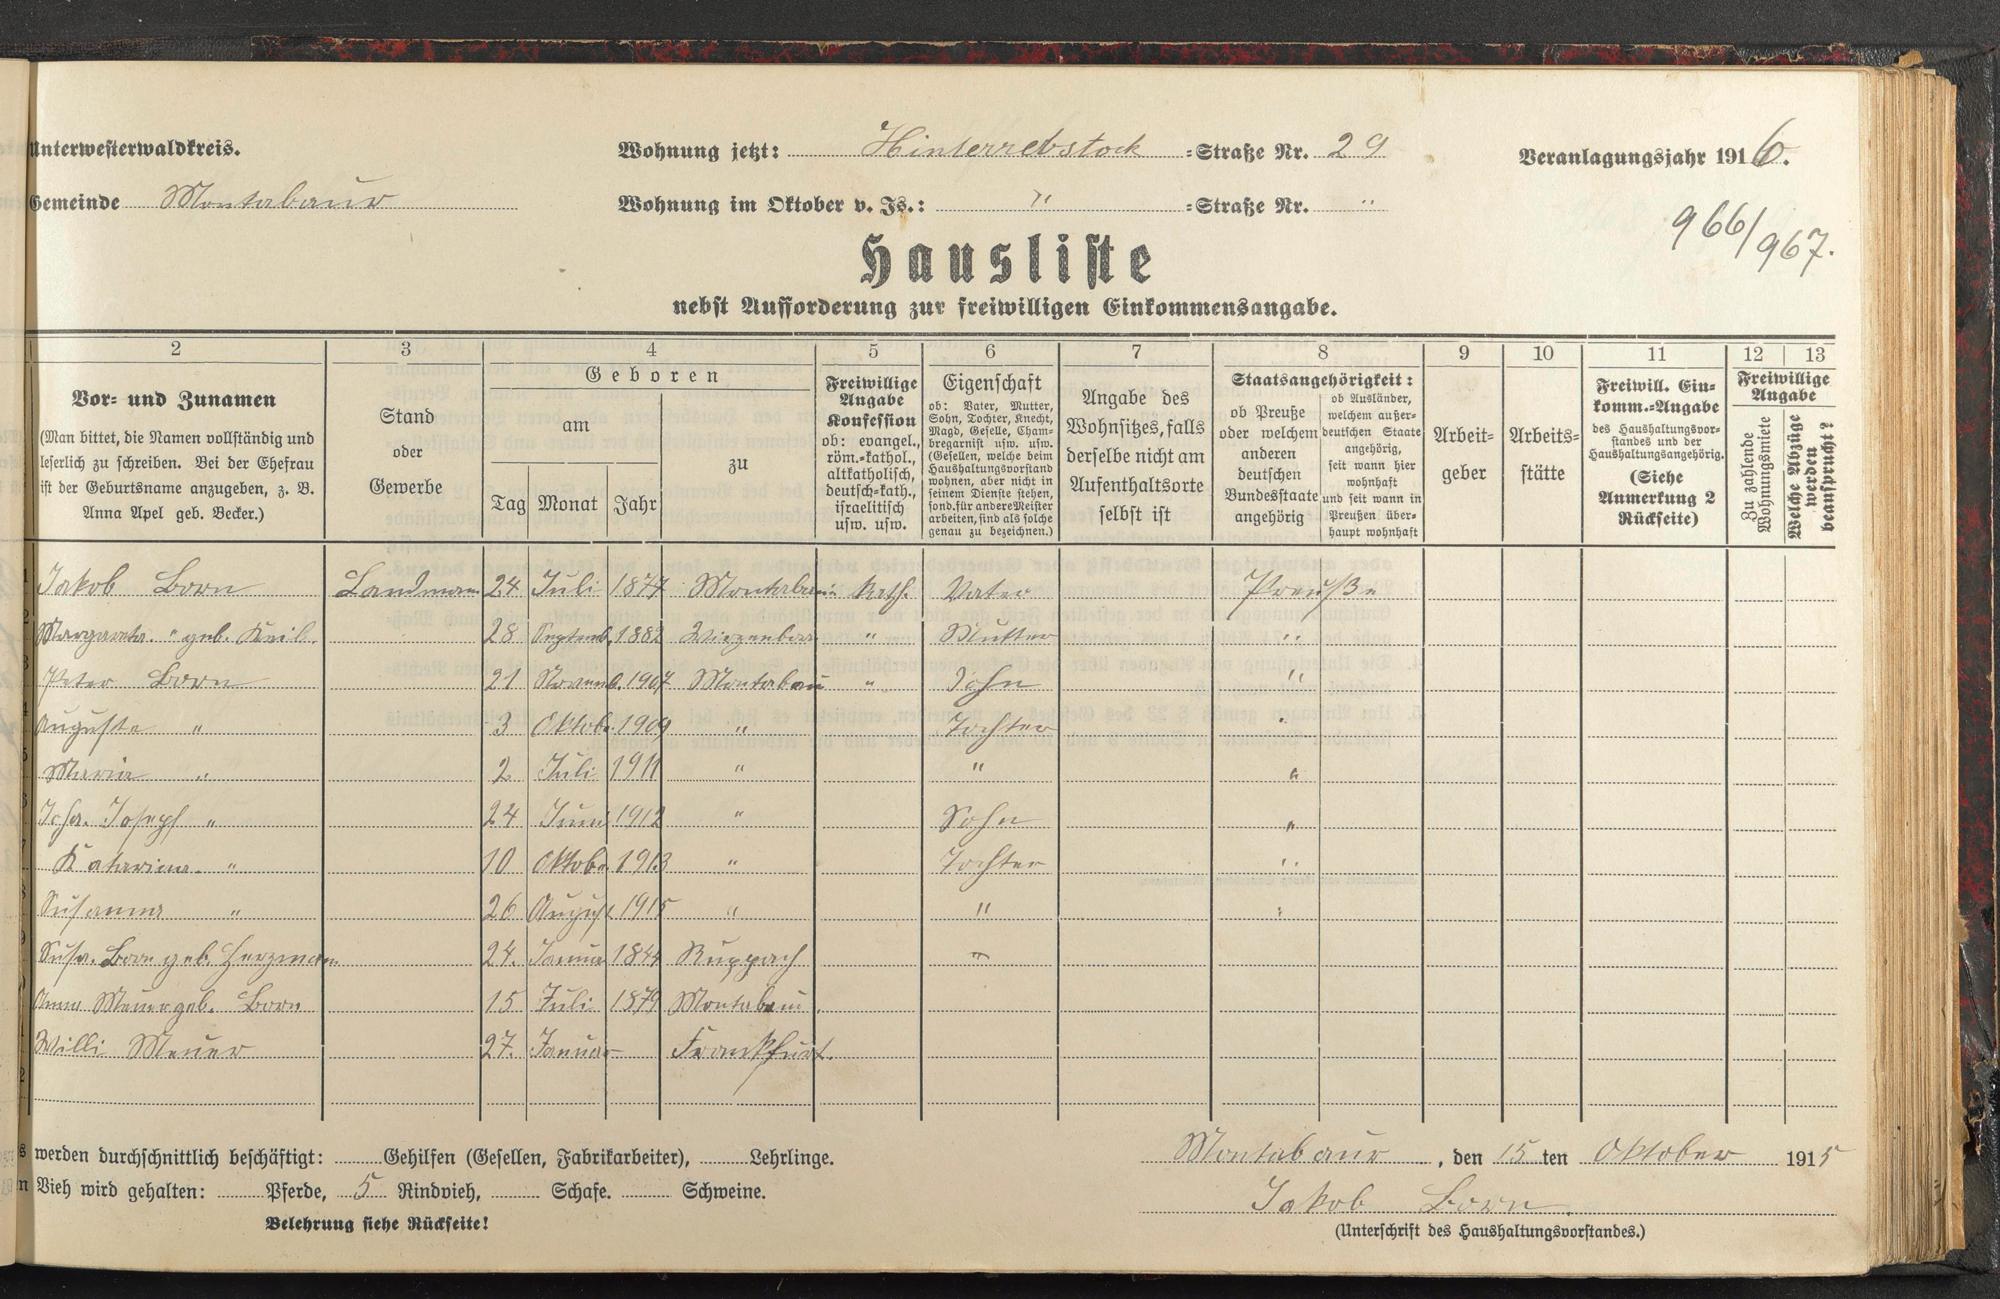 Unterwesterwaldkreis.
Wohnung jetzt: Hinterrebstock =Straße Nr. 29
Veranlagungsjahr 1916.
Gemeinde Montabaur
Wohnung im Oktober v. Js.: " =Straße Nr. "
966/967.
Hausliste
nebst Aufforderung zur freiwilligen Einkommensangabe.
2 3 4 5 6 7 8 9 10 11 12 13
Vor- und Zunamen
(Man bittet, die Namen vollständig und
leserlich zu schreiben. Bei der Ehefrau
ist der Geburtsname anzugeben, z. B.
Anna Apel geb. Becker.)
Stand
oder
Gewerbe
Geboren
am
Tag Monat Jahr
zu
Freiwillige
Angabe
Konfession
ob: evangel.,
röm.=kathol.,
altkatholisch,
deutsch=kath.,
israelitisch
usw. usw.
Eigenschaft
ob: Vater, Mutter,
Sohn, Tochter, Knecht,
Magd, Geselle, Cham-
bregarnist usw. usw.
(Gesellen, welche beim
Haushaltungsvorstand
wohnen, aber nicht in
seinem Dienste stehen,
sond. für andere Meister
arbeiten, sind als solche
genau zu bezeichnen.)
Angabe des
Wohnsitzes, falls
derselbe nicht am
Aufenthaltsorte
selbst ist
Staatsangehörigkeit:
ob Preuße
oder welchem
anderen
deutschen
Bundesstaate
angehörig
ob Ausländer,
welchem außer-
deutschen Staate
angehörig,
seit wann hier
wohnhaft
und seit wann in
Preußen über-
haupt wohnhaft
Arbeit-
geber
Arbeits-
stätte
Freiwill. Ein-
komm.=Angabe
des Haushaltungsvor-
standes und der
Haushaltungsangehörig.
(Siehe
Anmerkung 2
Rückseite)
Freiwillige
Angabe
Zu zahlende
Wohnungsmiete
Welche Abzüge
werden
beansprucht?
Jakob Born Landmann 24 Juli 1877 Montabaur kath. Vater Preuße
Margareta " geb. Keil 28 Septemb. 1882 " Mutter "
Peter Born 21 Novemb. 1907 Montabaur " Sohn "
Auguste " 3 Oktob. 1909 " Tochter "
Maria " 2 Juli 1911 " " "
Joha. Joseph " 24 Juni 1912 " Sohn "
Katarina " 10 Oktob. 1913 " Tochter "
Susanna " 26 August 1915 " " "
Susa. Born geb. Herzmann 24. Januar 1844 Ruppach "
Anna Meuer geb. Born 15 Juli 1879 Montabaur
Willi Meuer 27. Januar Frankfurt.
werden durchschnittlich beschäftigt: Gehilfen (Gesellen, Fabrikarbeiter), Lehrlinge.
Montabaur, den 15 ten Oktober 1915
Vieh wird gehalten: Pferde, 5 Rindvieh, Schafe. Schweine.
Jakob Born.
Belehrung siehe Rückseite!
(Unterschrift des Haushaltungsvorstandes.)